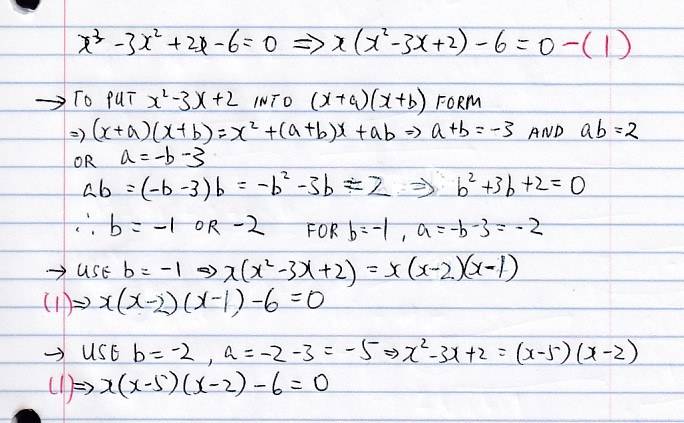 x³ -3x² +2x -6=0 ⇒ x(x²-3x+2) -6=0 -(1)
→ TO PUT x²-3x+2 INTO (x+a)(x+b) FORM
⇒ (x+a)(x+b)=x²+(a+b)x+ab ⇒ a+b=-3 AND ab=2
OR a=-b-3
ab =(-b-3)b = -b²-3b = 2 ⇒ b²+3b+2=0
∴ b=-1 OR -2 FOR b=-1, a=-b-3=-2
→ USE b=-1 ⇒ x(x²-3x+2) = x(x-2)(x-1)
(1)⇒ x(x-2)(x-1)-6=0
→ USE b=-2, a=-2-3=-5 ⇒ x²-3x+2=(x-5)(x-2)
(1)⇒ x(x-5)(x-2)-6=0